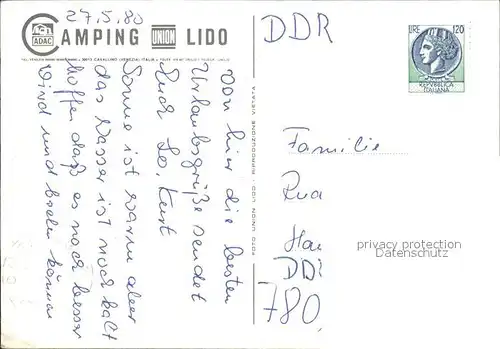 27.5.80
CAMPING UNION LIDO
ADAC
von hier die besten
Urlaubsgrüße sendet
Euch Lo, Kurt
Sonne ist warm aber
das Wasser ist noch kalt
hoffen daß es noch besser
wird und baden können
FOTO UNION LIDO - RIPRODUZIONE VIETATA
DDR
LIRE 120
REPVBBLICA
ITALIANA
Familie
Han
DDR
780
privacy protection
Datenschutz